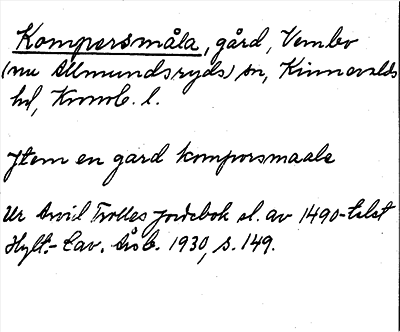 Kompersmåla, gård, Vembo
(nu Allmundsryds) sn, Kinnevalds
hd, Kronob. l.
Jtem en gard komporsmaale
Ur Arvid Trolles jordebok sl. av 1490-talet
Hylt.-Cav. Årsb. 1930, s. 149.